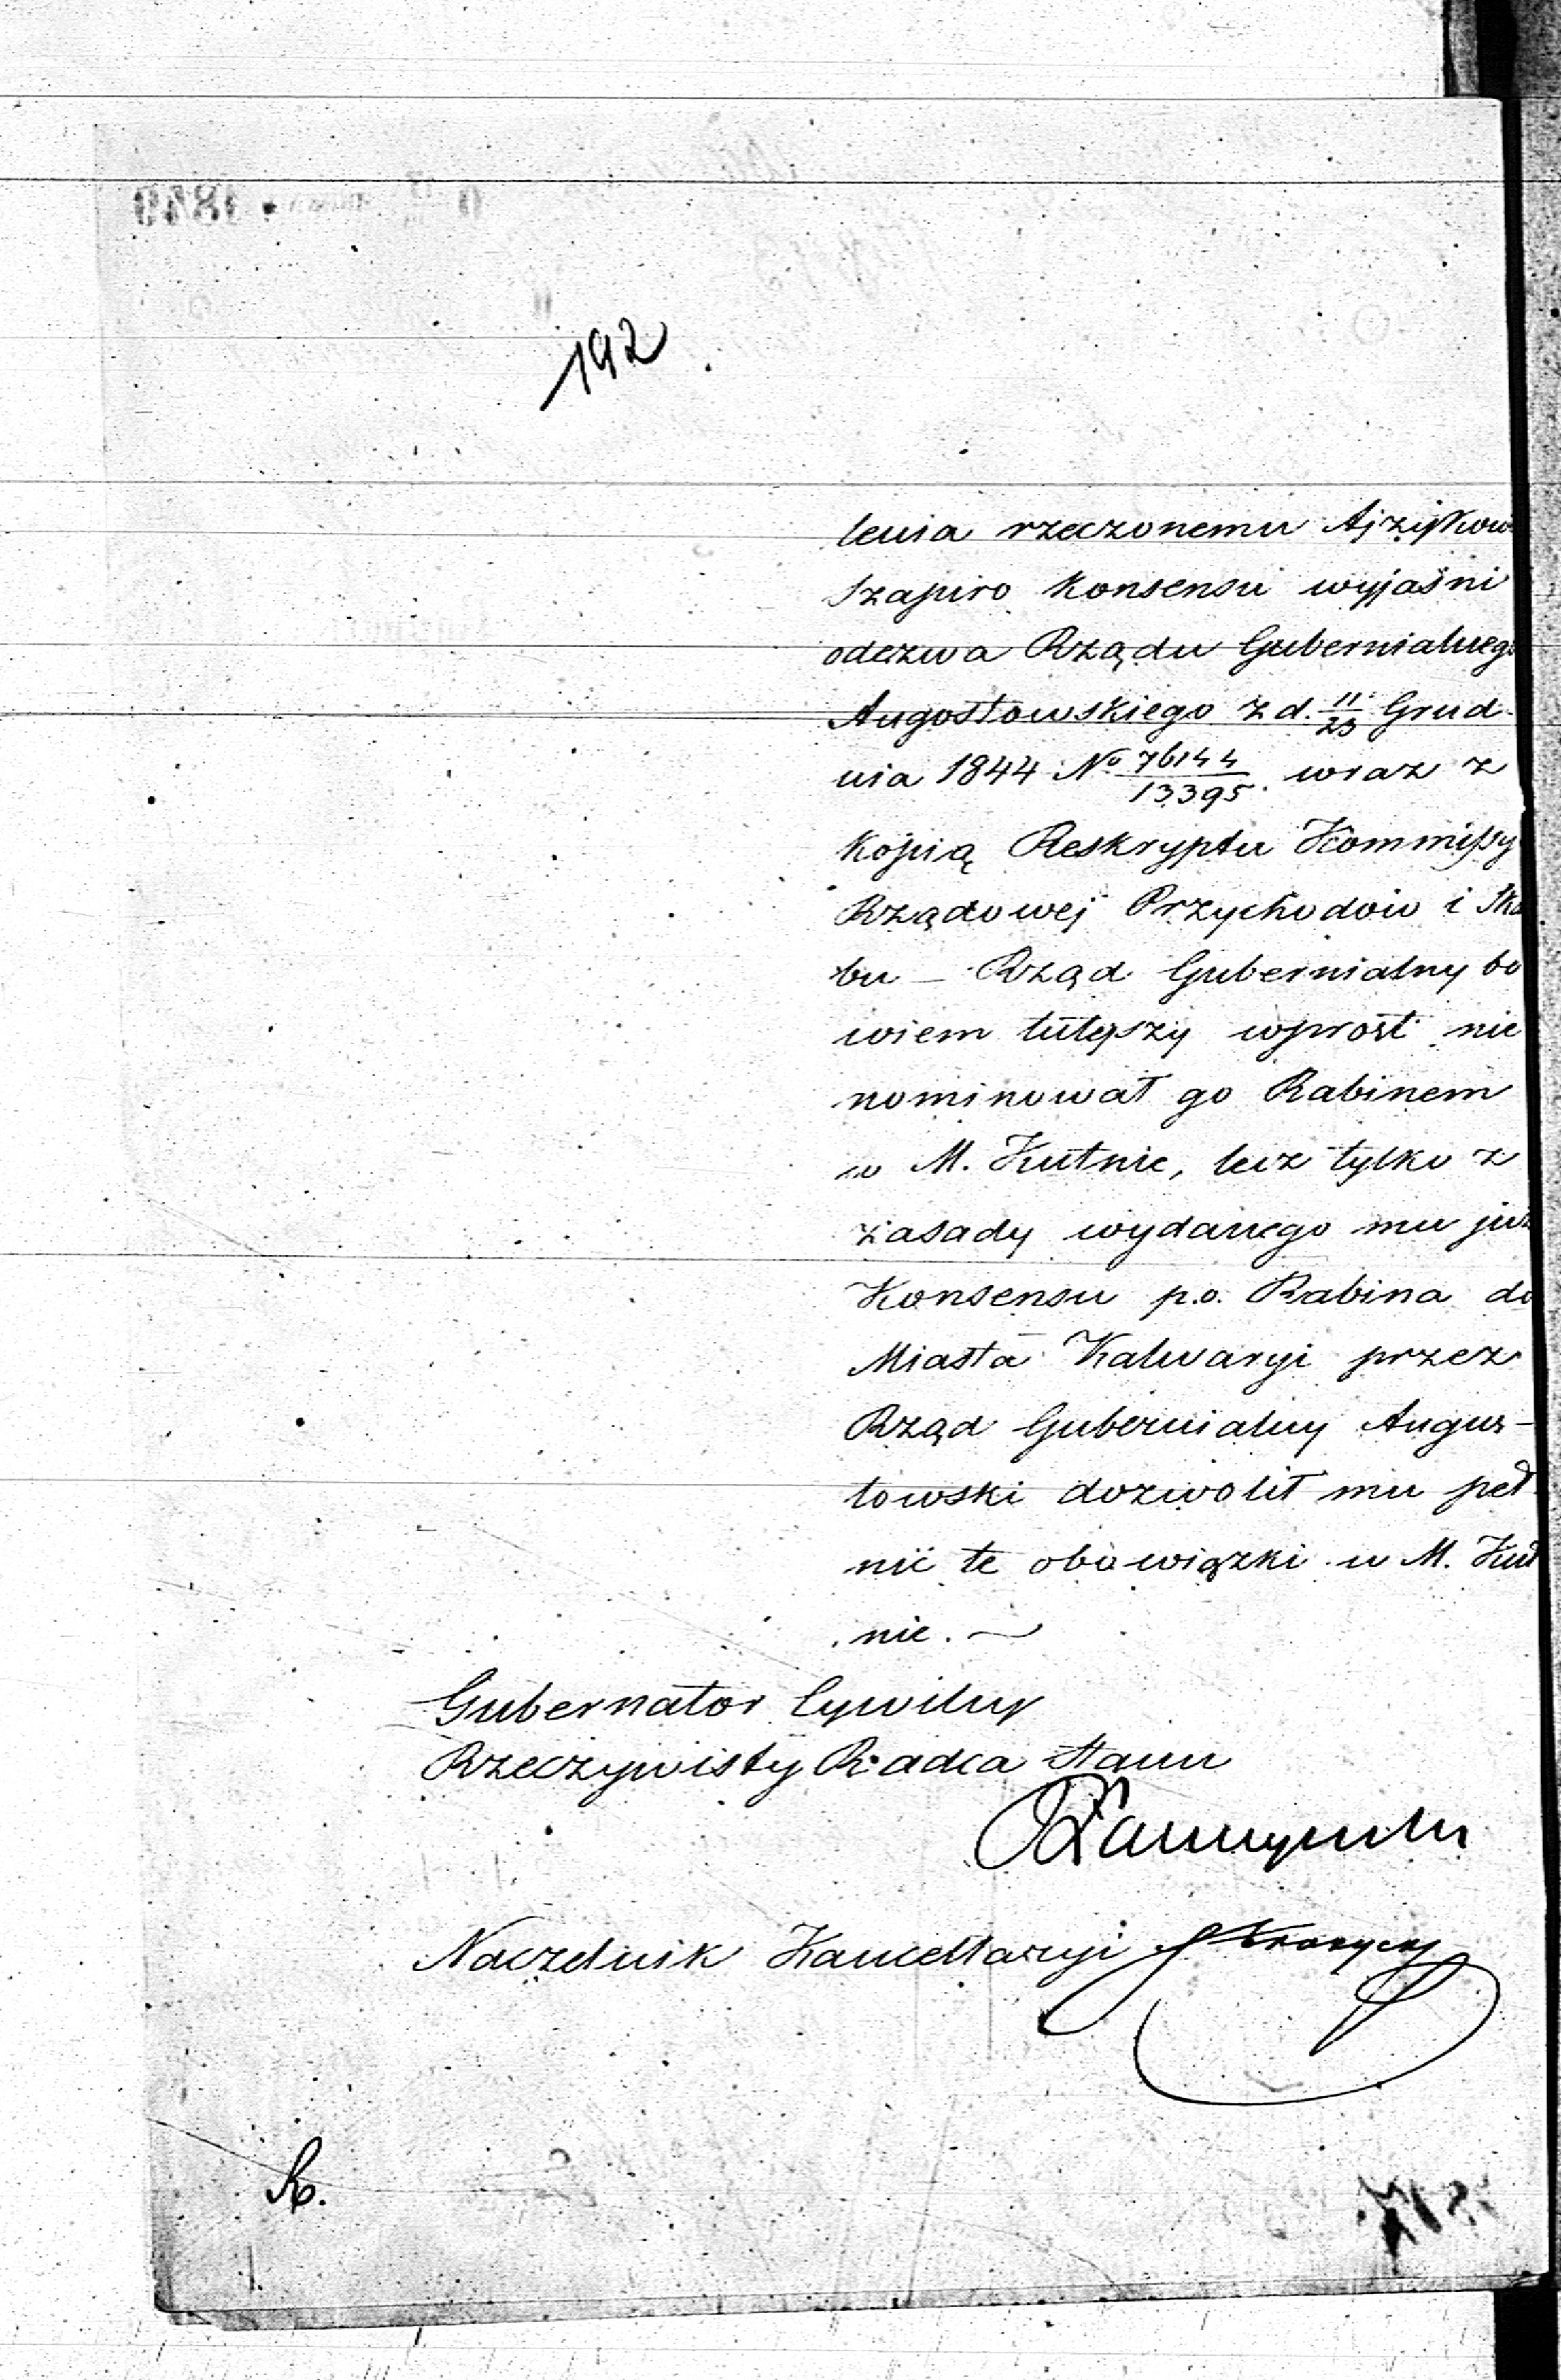 192
lenia rzeczonemu Ajzyskowi
Szapiro Konsensu wyjaśni
odezwa Rządu Gubernialnego
Augustowskiego z d. 11/23 Grud-
nia 1844 No 76144/13395. wraz z
Kopią Reskryptu Kommissyi
Rządowej Przychodów i Ska
bu — Rząd Gubernialny bo
wiem tutejszy wprost nie
nominował go Rabinem
w M. Kutnie, lecz tylko z
zasady wydanego mu już
Konsensu p.o. Rabina do
Miasta Kalwaryi przez
Rząd Gubernialny Augus-
towski dozwolił mu peł-
nić te obowiązki w M. Kut
nie. —
Gubernator Cywilny
Rzeczywisty Radca Stanu
Naczelnik Kancellaryi